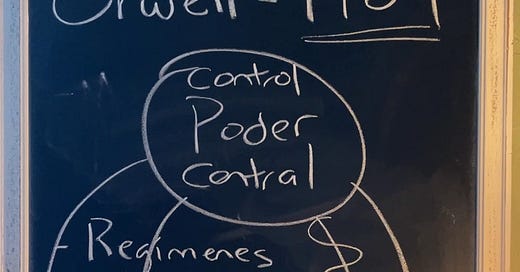 Orwell - 1984
Control
Poder
Control
- Regimenes $